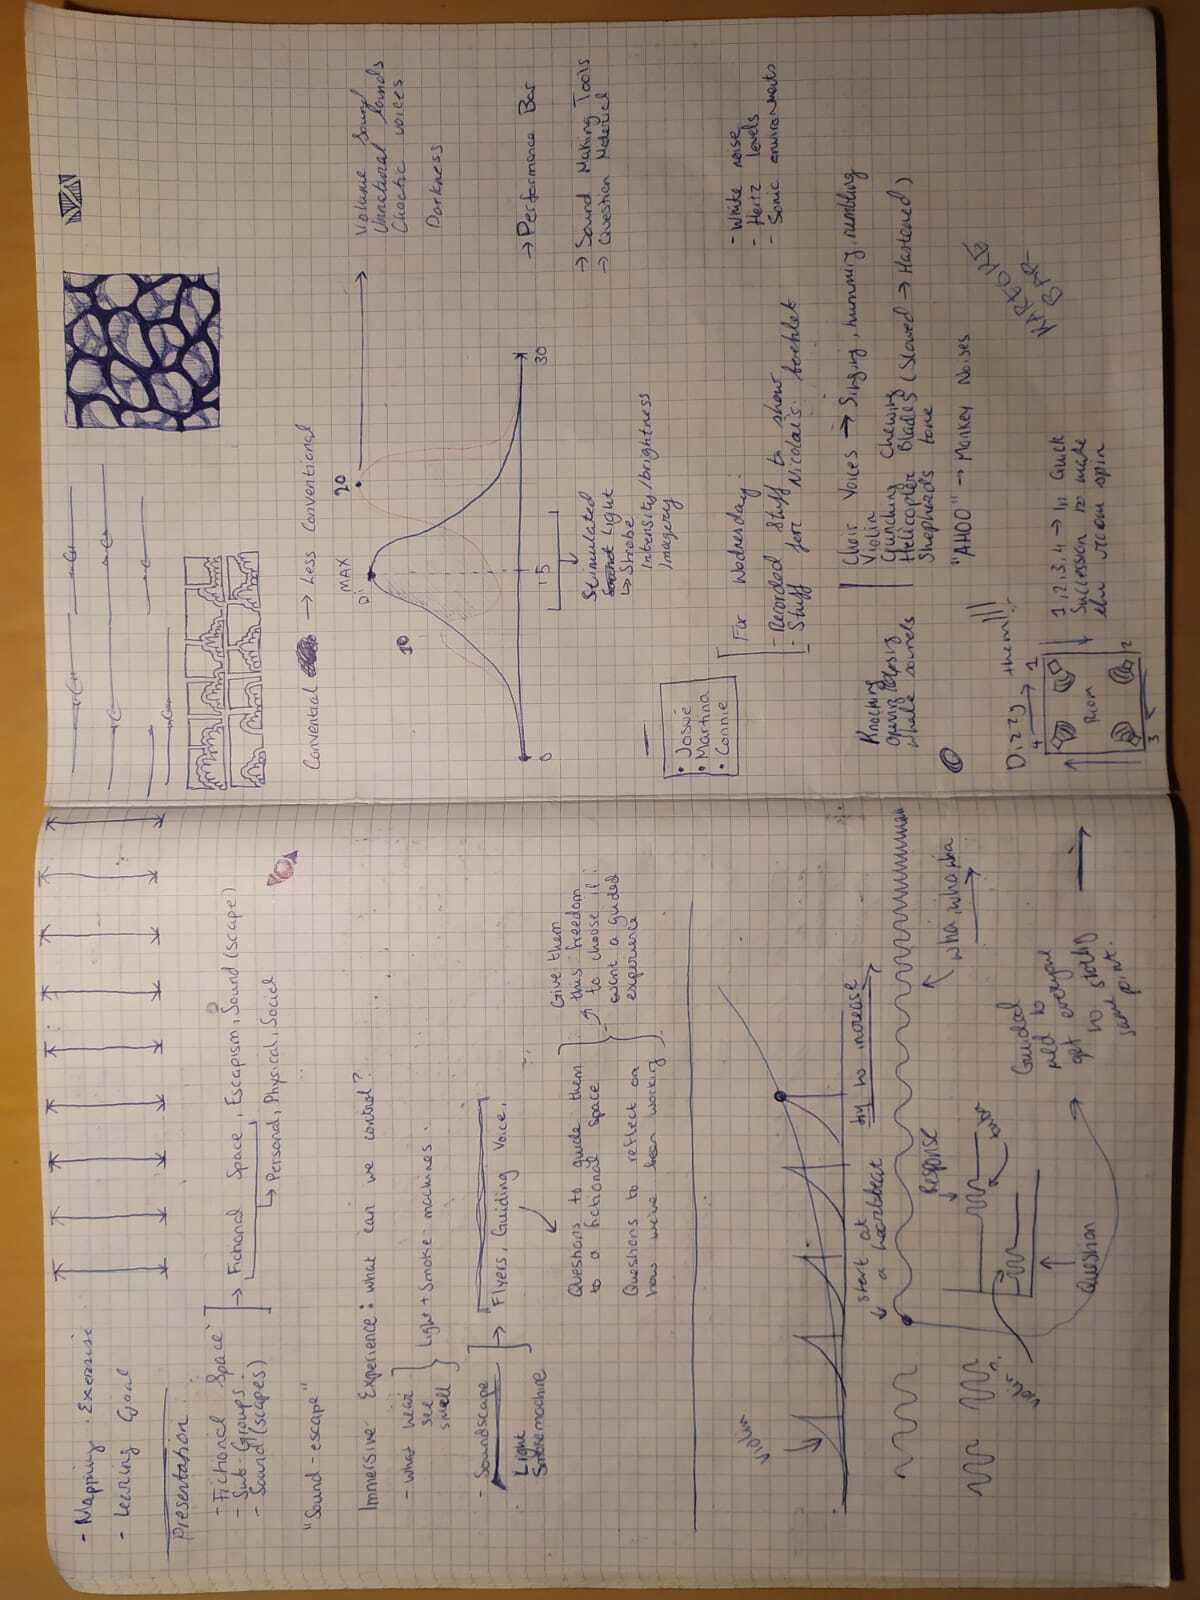 - Mapping Exercise
- Learning Goal
Presentation
- Fictional Space
- Sub-Groups
- Sound(scapes)
→ Fictional Space, Escapism, Sound(scape)
→ Personal, Physical, Social
"Sound-escape"
Immersive Experience: what can we control?
- what hear
see
smell
Light + Smoke machines.
- Soundscape
Light
Smoke machine
→ Flyers, Guiding Voice,
Questions to guide them
to a fictional space
Questions to reflect on
how we've been working
Give them
this freedom
to choose if i
want a guided
experience
violin
start at
a heartbeat
try to increase
wha, wha, wha
Response
Question
Guided
get everyone
same point.
Conventional → Less Conventional
MAX
10
20
0
15
30
Volume Sound
Choctic voices
Darkness
Stimulated
Light
↳ Strobe
Intensity/brightness
Imagery
→ Performance Bar
→ Sound Making Tools
→ Question Material
• Martina
• Connie
For Wednesday:
- Recorded stuff to show
- Stuff for Nicolai's booklet
- White noise
- Hertz levels
- Sonic environments
Knocking
whale sounds
Choir Voices → Singing, humming, rumbling
Violin
Crunching Chewing
Helicopter Blades (Slowed → Hastened)
Shepherds tone
"AHOO" → Monkey Noises
Dizzy them!!!
4 → 1
Room
3
2
1,2,3,4 → In Quick
Succession to make
the room spin